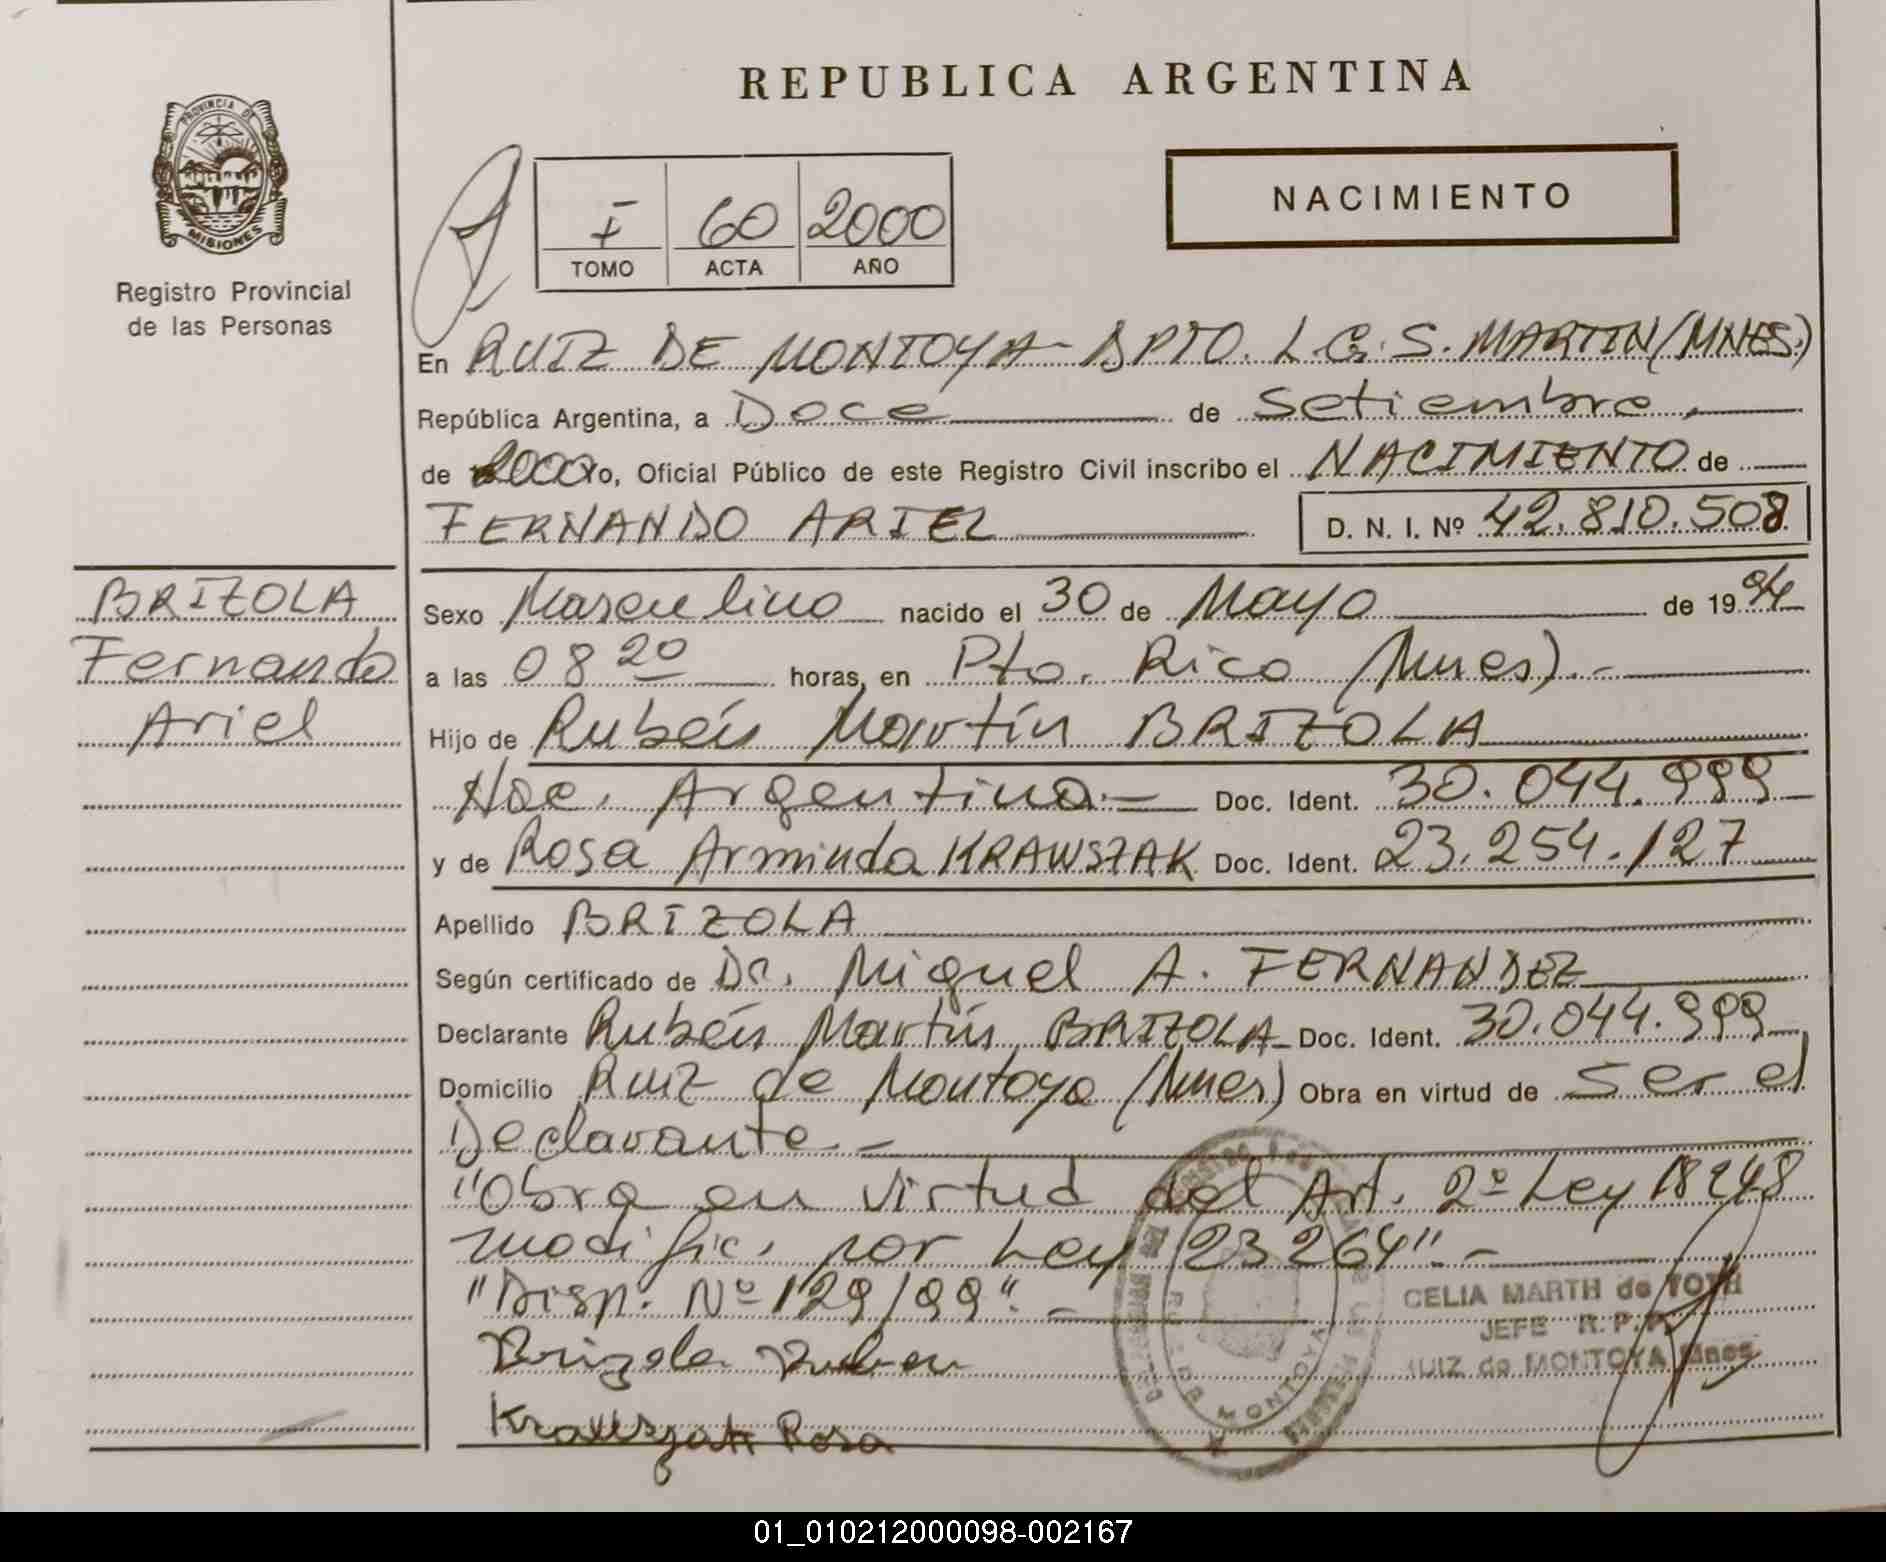 REPUBLICA ARGENTINA
PROVINCIA DE
MISIONES
Registro Provincial
de las Personas
I 60 2000
TOMO ACTA AÑO
NACIMIENTO
En RUIZ DE MONTOYA - DPTO. L.G.S. MARTIN (MNES.)
República Argentina, a Doce de Setiembre,
de 2000 Yo, Oficial Público de este Registro Civil inscribo el NACIMIENTO de
FERNANDO ARIEL D. N. I. Nº 42.810.508
BRIZOLA
Fernando
Ariel
Sexo Masculino nacido el 30 de Mayo de 1994
a las 08 20 horas, en Pto. Rico (Mnes).-
Hijo de Rubén Martín BRIZOLA
Nac. Argentina.- Doc. Ident. 30.044.999
y de Rosa Arminda KRAWSZAK Doc. Ident. 23.254.127
Apellido BRIZOLA
Según certificado de Dr. Miguel A. FERNANDEZ
Declarante Rubén Martín BRIZOLA Doc. Ident. 30.044.999
Domicilio Ruiz de Montoya (Mnes) Obra en virtud de ser el
Declarante.-
"Obra en virtud del Art. 2º Ley 18248
modific. por Ley 23264".-
"Disp. Nº 129/99".-
Brizola Ruben
Rosa
CELIA MARTH de TOTH
JEFE R.P.P.
RUIZ de MONTOYA Mnes
RUIZ DE MONTOYA
01_010212000098-002167